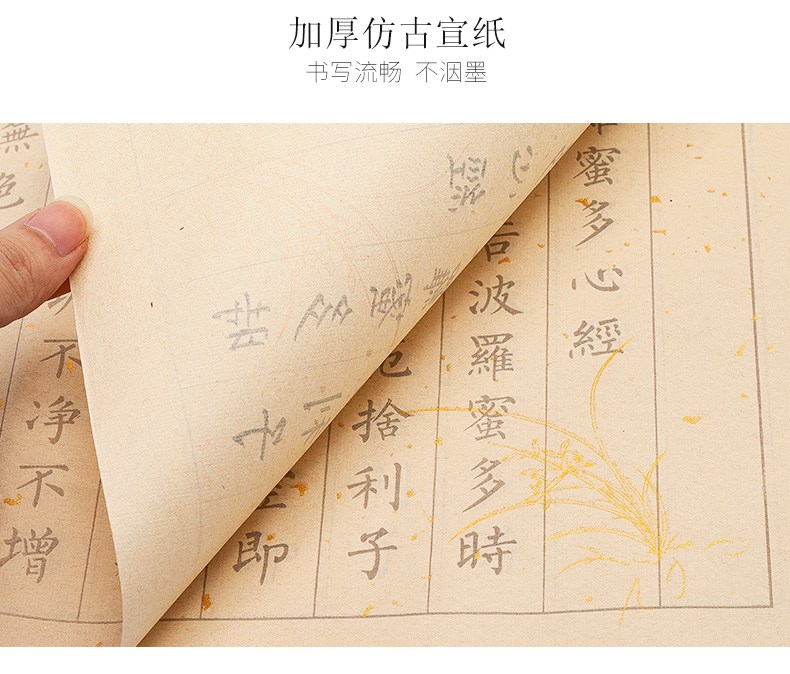 加厚仿古宣纸
书写流畅 不洇墨
蜜多心經
波羅蜜多時
捨利子
即
不净不增
無色